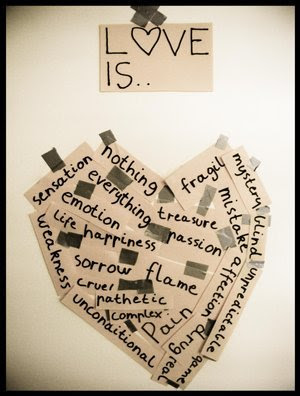 LOVE
IS..
nothing
sensation
everything
fragil
mystery
emotion
treasure
mistake
blind
life
happiness
passion
affection
unpredictable
weakness
sorrow
flame
cruel
pathetic
complex
pain
drug
real
unconditional
game